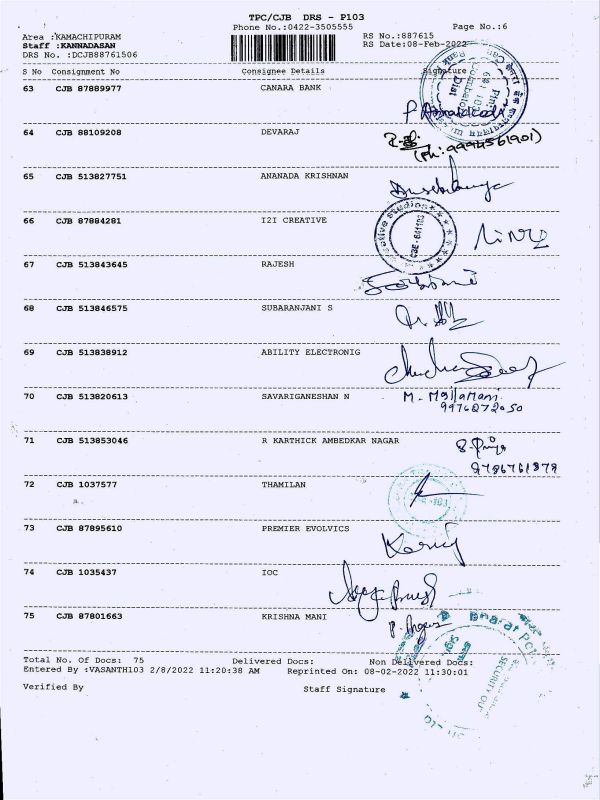 TPC/CJB DRS - P103
Phone No.:0422-3505555
Page No.:6
Area :KAMACHIPURAM
RS No.:887615
Staff :KANNADASAN
RS Date:08-Feb-2022
DRS No. :DCJB88761506
S No Consignment No Consignee Details Signature
63 CJB 87889977 CANARA BANK
64 CJB 88109208 DEVARAJ
(Ph: 9994561901)
65 CJB 513827751 ANANADA KRISHNAN
66 CJB 87884281 I2I CREATIVE
67 CJB 513843645 RAJESH
68 CJB 513846575 SUBARANJANI S
69 CJB 513838912 ABILITY ELECTRONIG
70 CJB 513820613 SAVARIGANESHAN N
M. Mallamani
9976272050
71 CJB 513853046 R KARTHICK AMBEDKAR NAGAR
72 CJB 1037577 THAMILAN
73 CJB 87895610 PREMIER EVOLVICS
74 CJB 1035437 IOC
75 CJB 87801663 KRISHNA MANI
Total No. Of Docs: 75 Delivered Docs: Non Delivered Docs:
Entered By :VASANTH103 2/8/2022 11:20:38 AM Reprinted On: 08-02-2022 11:30:01
Verified By Staff Signature